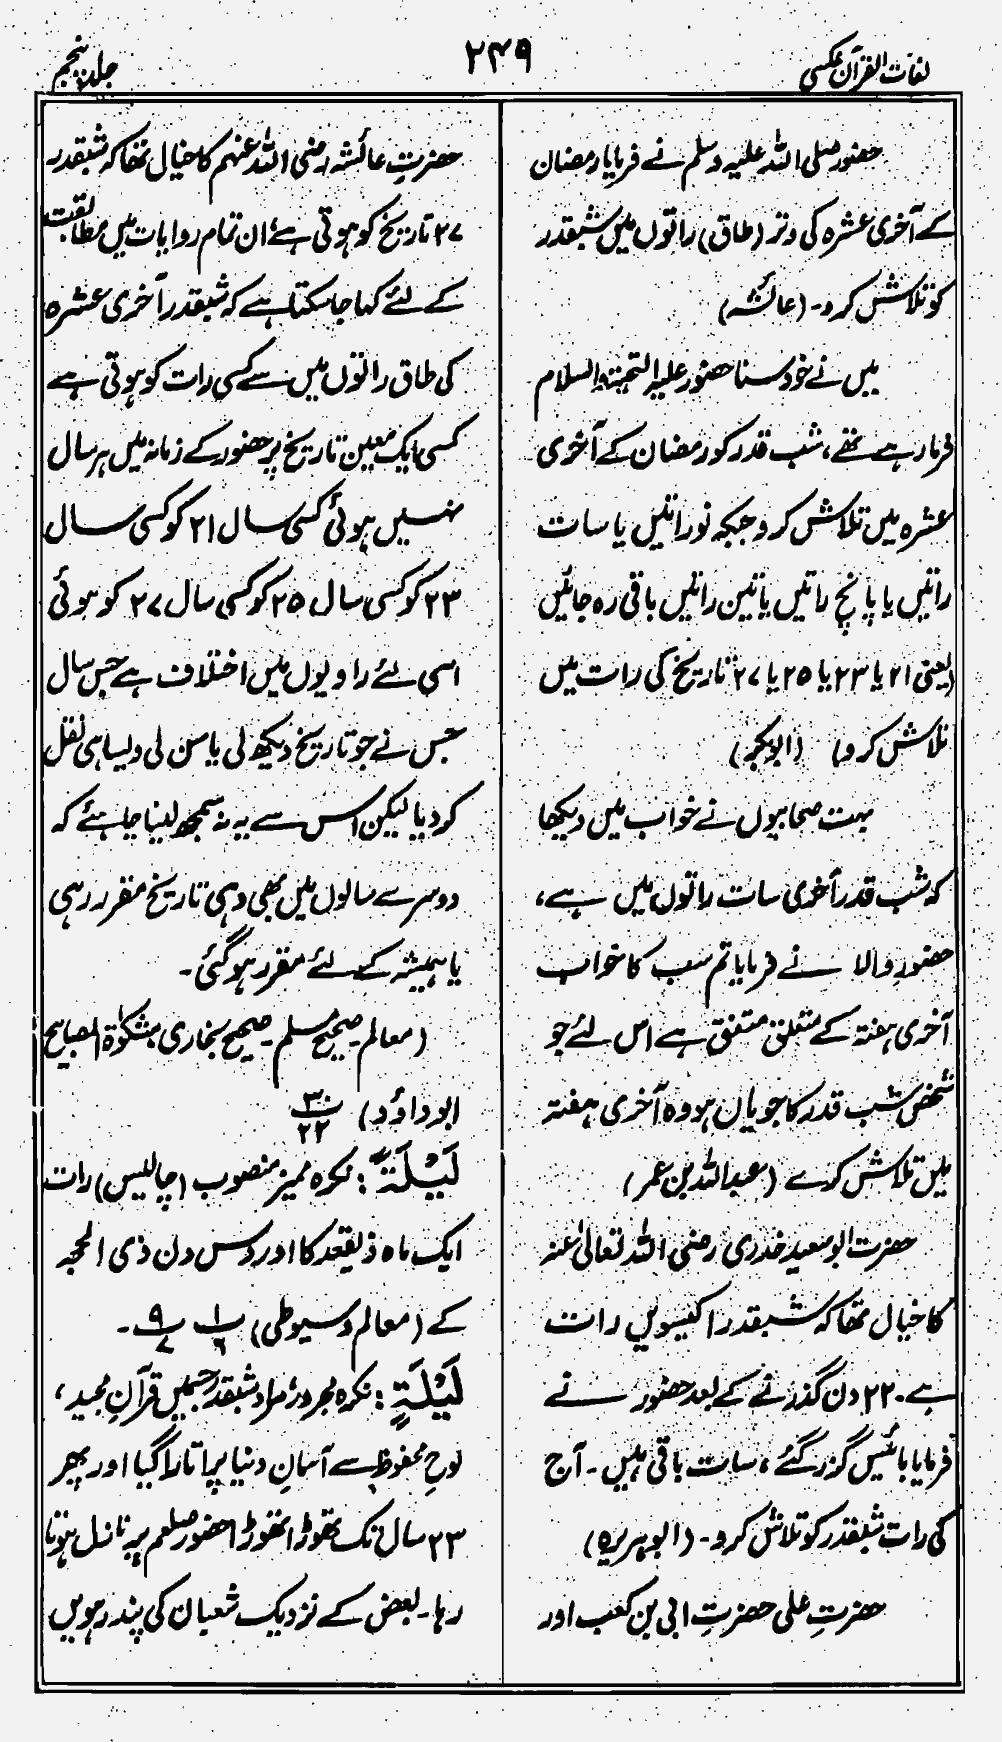 لغات القرآن عکسی
۲۴۹
جلد پنجم
حضور صلی اللہ علیہ وسلم نے فرمایا رمضان
کے آخری عشرہ کی وتر (طاق) راتوں میں شبقدر
کو تلاش کرو۔ (عائشہ)
میں نے خود سنا حضور علیہ التحیۃ والسلام
فرما رہے تھے، شب قدر کو رمضان کے آخری
عشرہ میں تلاش کرو جبکہ نو راتیں یا سات
راتیں یا پانچ راتیں یا تین راتیں باقی رہ جائیں
(یعنی ۲۱ یا ۲۳ یا ۲۵ یا ۲۷ تاریخ کی رات میں
تلاش کرو) (ابوبکر)
بہت صحابیوں نے خواب میں دیکھا
کہ شب قدر آخری سات راتوں میں ہے،
حضور والا نے فرمایا تم سب کا خواب
آخری ہفتہ کے متعلق متفق ہے اس لئے جو
شخص شب قدر کا جویان ہو وہ آخری ہفتہ
میں تلاش کرے (عبداللہ بن عمر)
حضرت ابوسعید خدری رضی اللہ تعالیٰ عنہ
کا خیال تھا کہ شبقدر اکیسویں رات
ہے۔ ۲۲ دن گذرنے کے بعد حضور نے
فرمایا بائیس گزر گئے، سات باقی ہیں۔ آج
کی رات شبقدر کو تلاش کرو۔ (ابوہریرہ)
حضرتِ علی حضرتِ ابی بن کعب اور
حضرتِ عائشہ رضی اللہ عنہم کا خیال تھا کہ شبقدر
۲۷ تاریخ کو ہوتی ہے ان تمام روایات میں مطابقت
کے لئے کہا جا سکتا ہے کہ شبقدر آخری عشرہ
کی طاق راتوں میں سے کسی رات کو ہوتی ہے
کسی ایک معین تاریخ پر حضور کے زمانہ میں ہر سال
نہیں ہوئی کسی سال ۲۱ کو کسی سال
۲۳ کو کسی سال ۲۵ کو کسی سال ۲۷ کو ہوئی
اسی لئے راویوں میں اختلاف ہے جس سال
جس نے جو تاریخ دیکھ لی یا سن لی ویسا ہی نقل
کر دیا لیکن اس سے یہ نہ سمجھ لینا چاہئے کہ
دوسرے سالوں میں بھی وہی تاریخ مقرر رہی
یا ہمیشہ کے لئے مقرر ہو گئی۔
(معالم۔ صحیح مسلم۔ صحیح بخاری، مشکوٰۃ المصابیح
ابوداؤد) ۳۰/۲۲
لَیْلَۃً: نکرہ ممیز منصوب (چالیس) رات
ایک ماہ ذیقعد کا اور دس دن ذی الحجہ
کے (معالم و سیوطی) ۱/۶ ۹/۷۔
لَیْلَۃٍ: نکرہ مجرور، مراد شبقدر جسمیں قرآنِ مجید،
لوحِ محفوظ سے آسمانِ دنیا پر اتارا گیا اور پھر
۲۳ سال تک تھوڑا تھوڑا حضور صلعم پر نازل ہوتا
رہا۔ بعض کے نزدیک شعبان کی پندرہویں